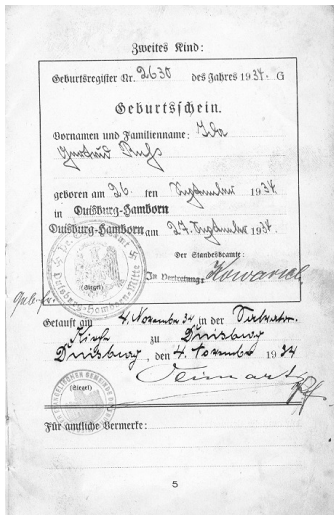 Zweites Kind:
Geburtsregister Nr. 2630 des Jahres 1934. G
Geburtsschein.
Vornamen und Familienname: Ida
Gertrud
geboren am 26. ten September 1934
in Duisburg-Hamborn
Duisburg-Hamborn am 27. September 1934.
Der Standesbeamte:
(Siegel) In Vertretung: Kowarick
Getauft am 4. November 34 in der Salvator-
Kirche zu Duisburg
Duisburg, den 4. November 1934
(Siegel)
Für amtliche Vermerke:
5